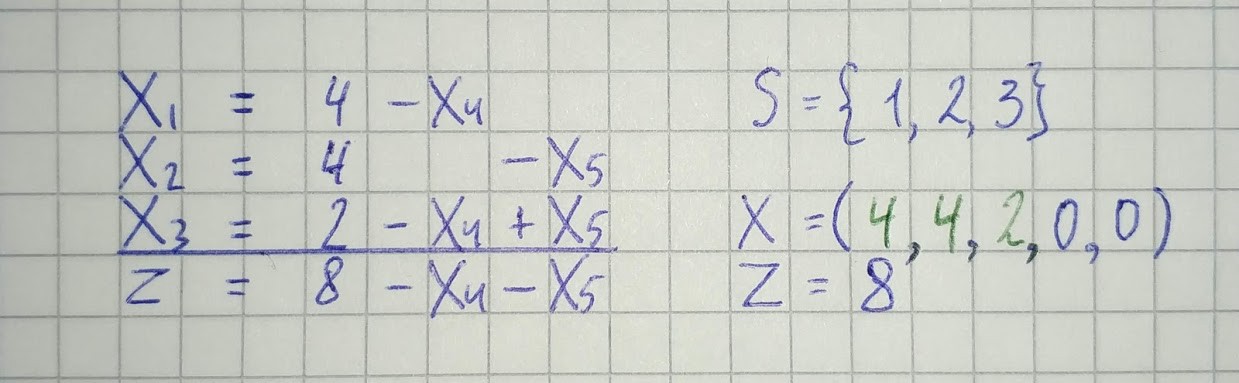 X₁ = 4 - X₄
X₂ = 4 - X₅
X₃ = 2 - X₄ + X₅
Z = 8 - X₄ - X₅
S = {1, 2, 3}
X = (4, 4, 2, 0, 0)
Z = 8